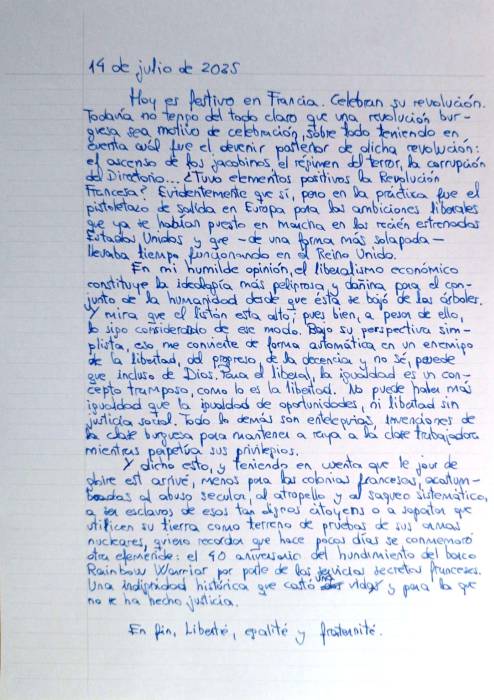 14 de julio de 2025
Hoy es festivo en Francia. Celebran su revolución.
Todavía no tengo del todo claro que una revolución bur-
guesa sea motivo de celebración, sobre todo teniendo en
cuenta cuál fue el devenir posterior de dicha revolución:
el ascenso de los jacobinos, el régimen del terror, la corrupción
del Directorio... ¿Tuvo elementos positivos la Revolución
Francesa? Evidentemente que sí, pero en la práctica fue el
pistoletazo de salida en Europa para las ambiciones liberales
que ya se habían puesto en marcha en los recién estrenados
Estados Unidos y que —de una forma más solapada—
llevaba tiempo funcionando en el Reino Unido.
En mi humilde opinión, el liberalismo económico
constituye la ideología más peligrosa y dañina para el con-
junto de la humanidad desde que ésta se bajó de los árboles.
Y mira que el listón está alto; pues bien, a pesar de ello,
lo sigo considerando de ese modo. Bajo su perspectiva sim-
plista, eso me convierte de forma automática en un enemigo
de la libertad, del progreso, de la decencia y no sé, puede
que incluso de Dios. Para el liberal, la igualdad es un con-
cepto tramposo, como lo es la libertad. No puede haber más
igualdad que la igualdad de oportunidades, ni libertad sin
justicia social. Todo lo demás son entelequias, invenciones de
la clase burguesa para mantener a raya a la clase trabajadora
mientras perpetúa sus privilegios.
Y dicho esto, y teniendo en cuenta que le jour de
gloire est arrivé, menos para las colonias francesas, acostum-
bradas al abuso secular, al atropello y al saqueo sistemático,
a ser esclavos de esos tan dignos citoyens o a soportar que
utilicen su tierra como terreno de pruebas de sus armas
nucleares, quiero recordar que hace pocos días se conmemoró
otra efeméride: el 40 aniversario del hundimiento del barco
Rainbow Warrior por parte de los servicios secretos franceses.
Una indignidad histórica que costó una vida y para la que
no se ha hecho justicia.
En fin, Liberté, egalité y fraternité.